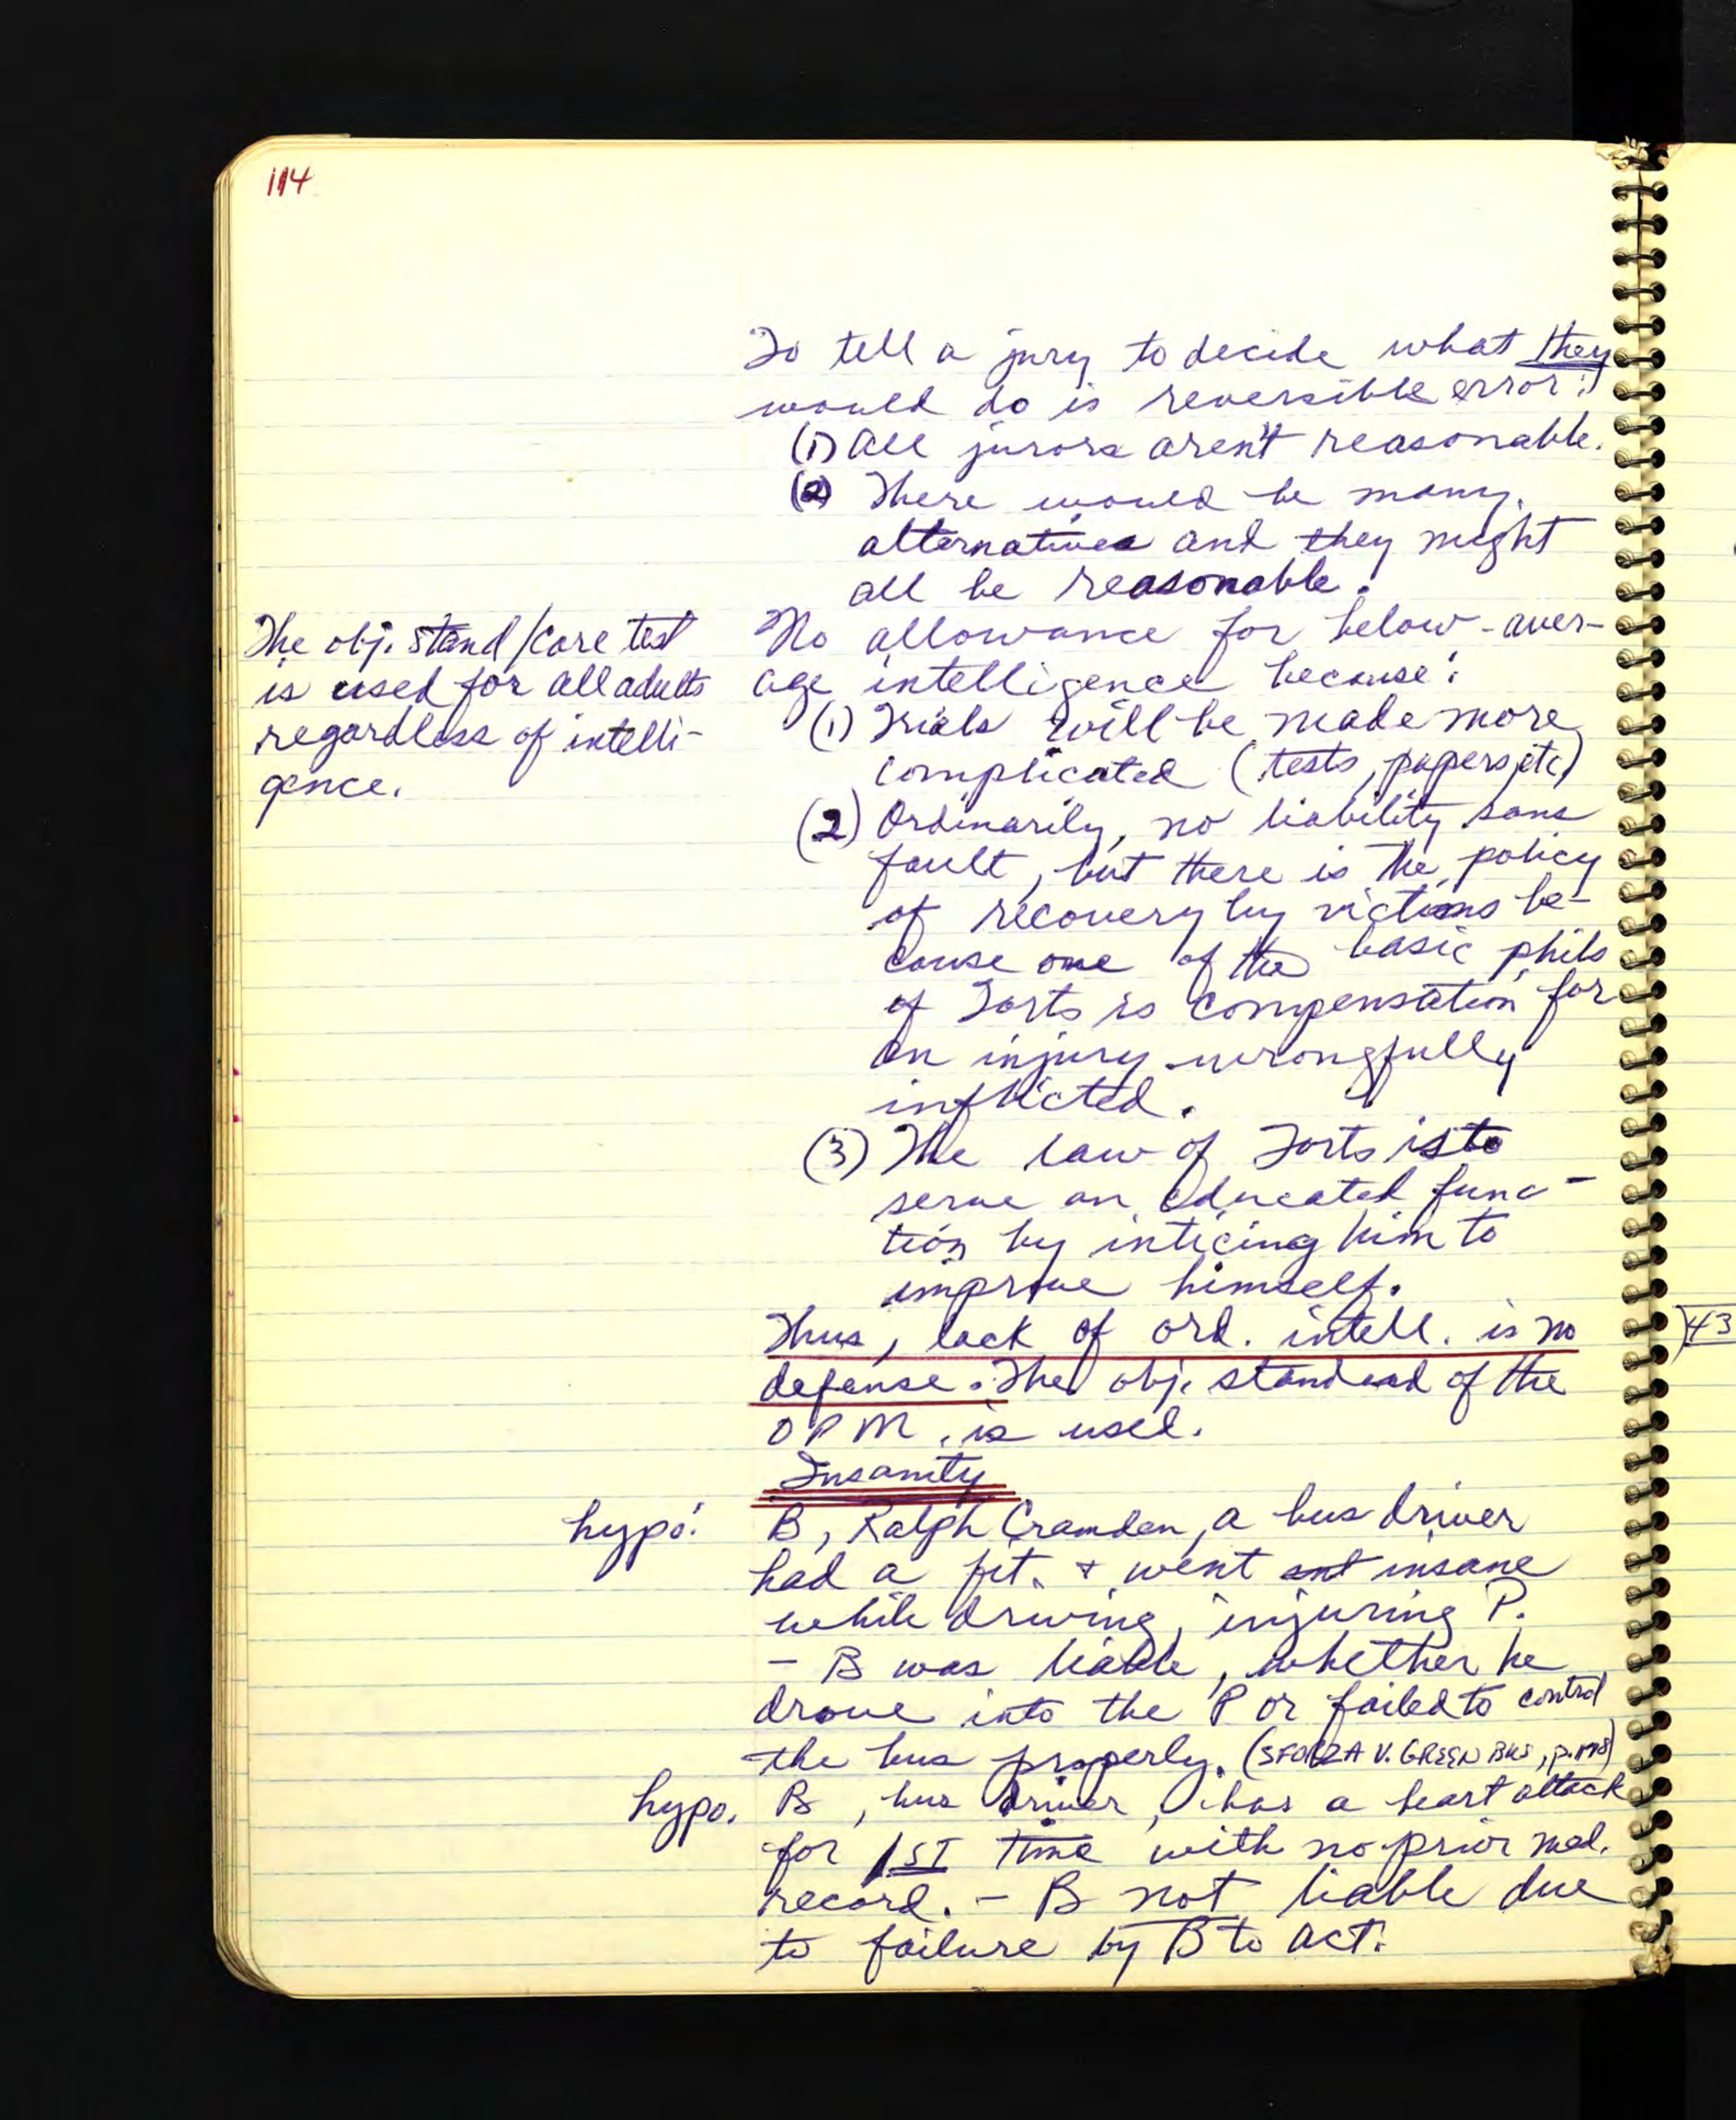 114
To tell a jury to decide what they
would do is reversible error:
(1) All jurors aren't reasonable.
(2) There would be many
alternatives and they might
all be reasonable.
The obj. stand/care test
is used for all adults
regardless of intelli-
gence.
No allowance for below-aver-
age intelligence because:
(1) Trials will be made more
complicated (tests, papers, etc)
(2) Ordinarily, no liability sans
fault, but there is the policy
of recovery by victims be-
cause one of the basic phils
of Torts is compensation for
an injury wrongfully
inflicted.
(3) The law of Torts is to
serve an educated func-
tion by inticing him to
improve himself.
Thus, lack of ord. intell. is no
defense. The obj. standard of the
OPM. is used.
Insanity
hypo:
B, Ralph Cramden, a bus driver
had a fit. & went insane
while driving, injuring P.
- B was liable, whether he
drove into the P or failed to control
the bus properly. (SFORZA V. GREEN BUS, p.
hypo.
B, bus driver, has a heart attack
for 1ST time with no prior med.
record. - B not liable due
to failure by B to act.
43